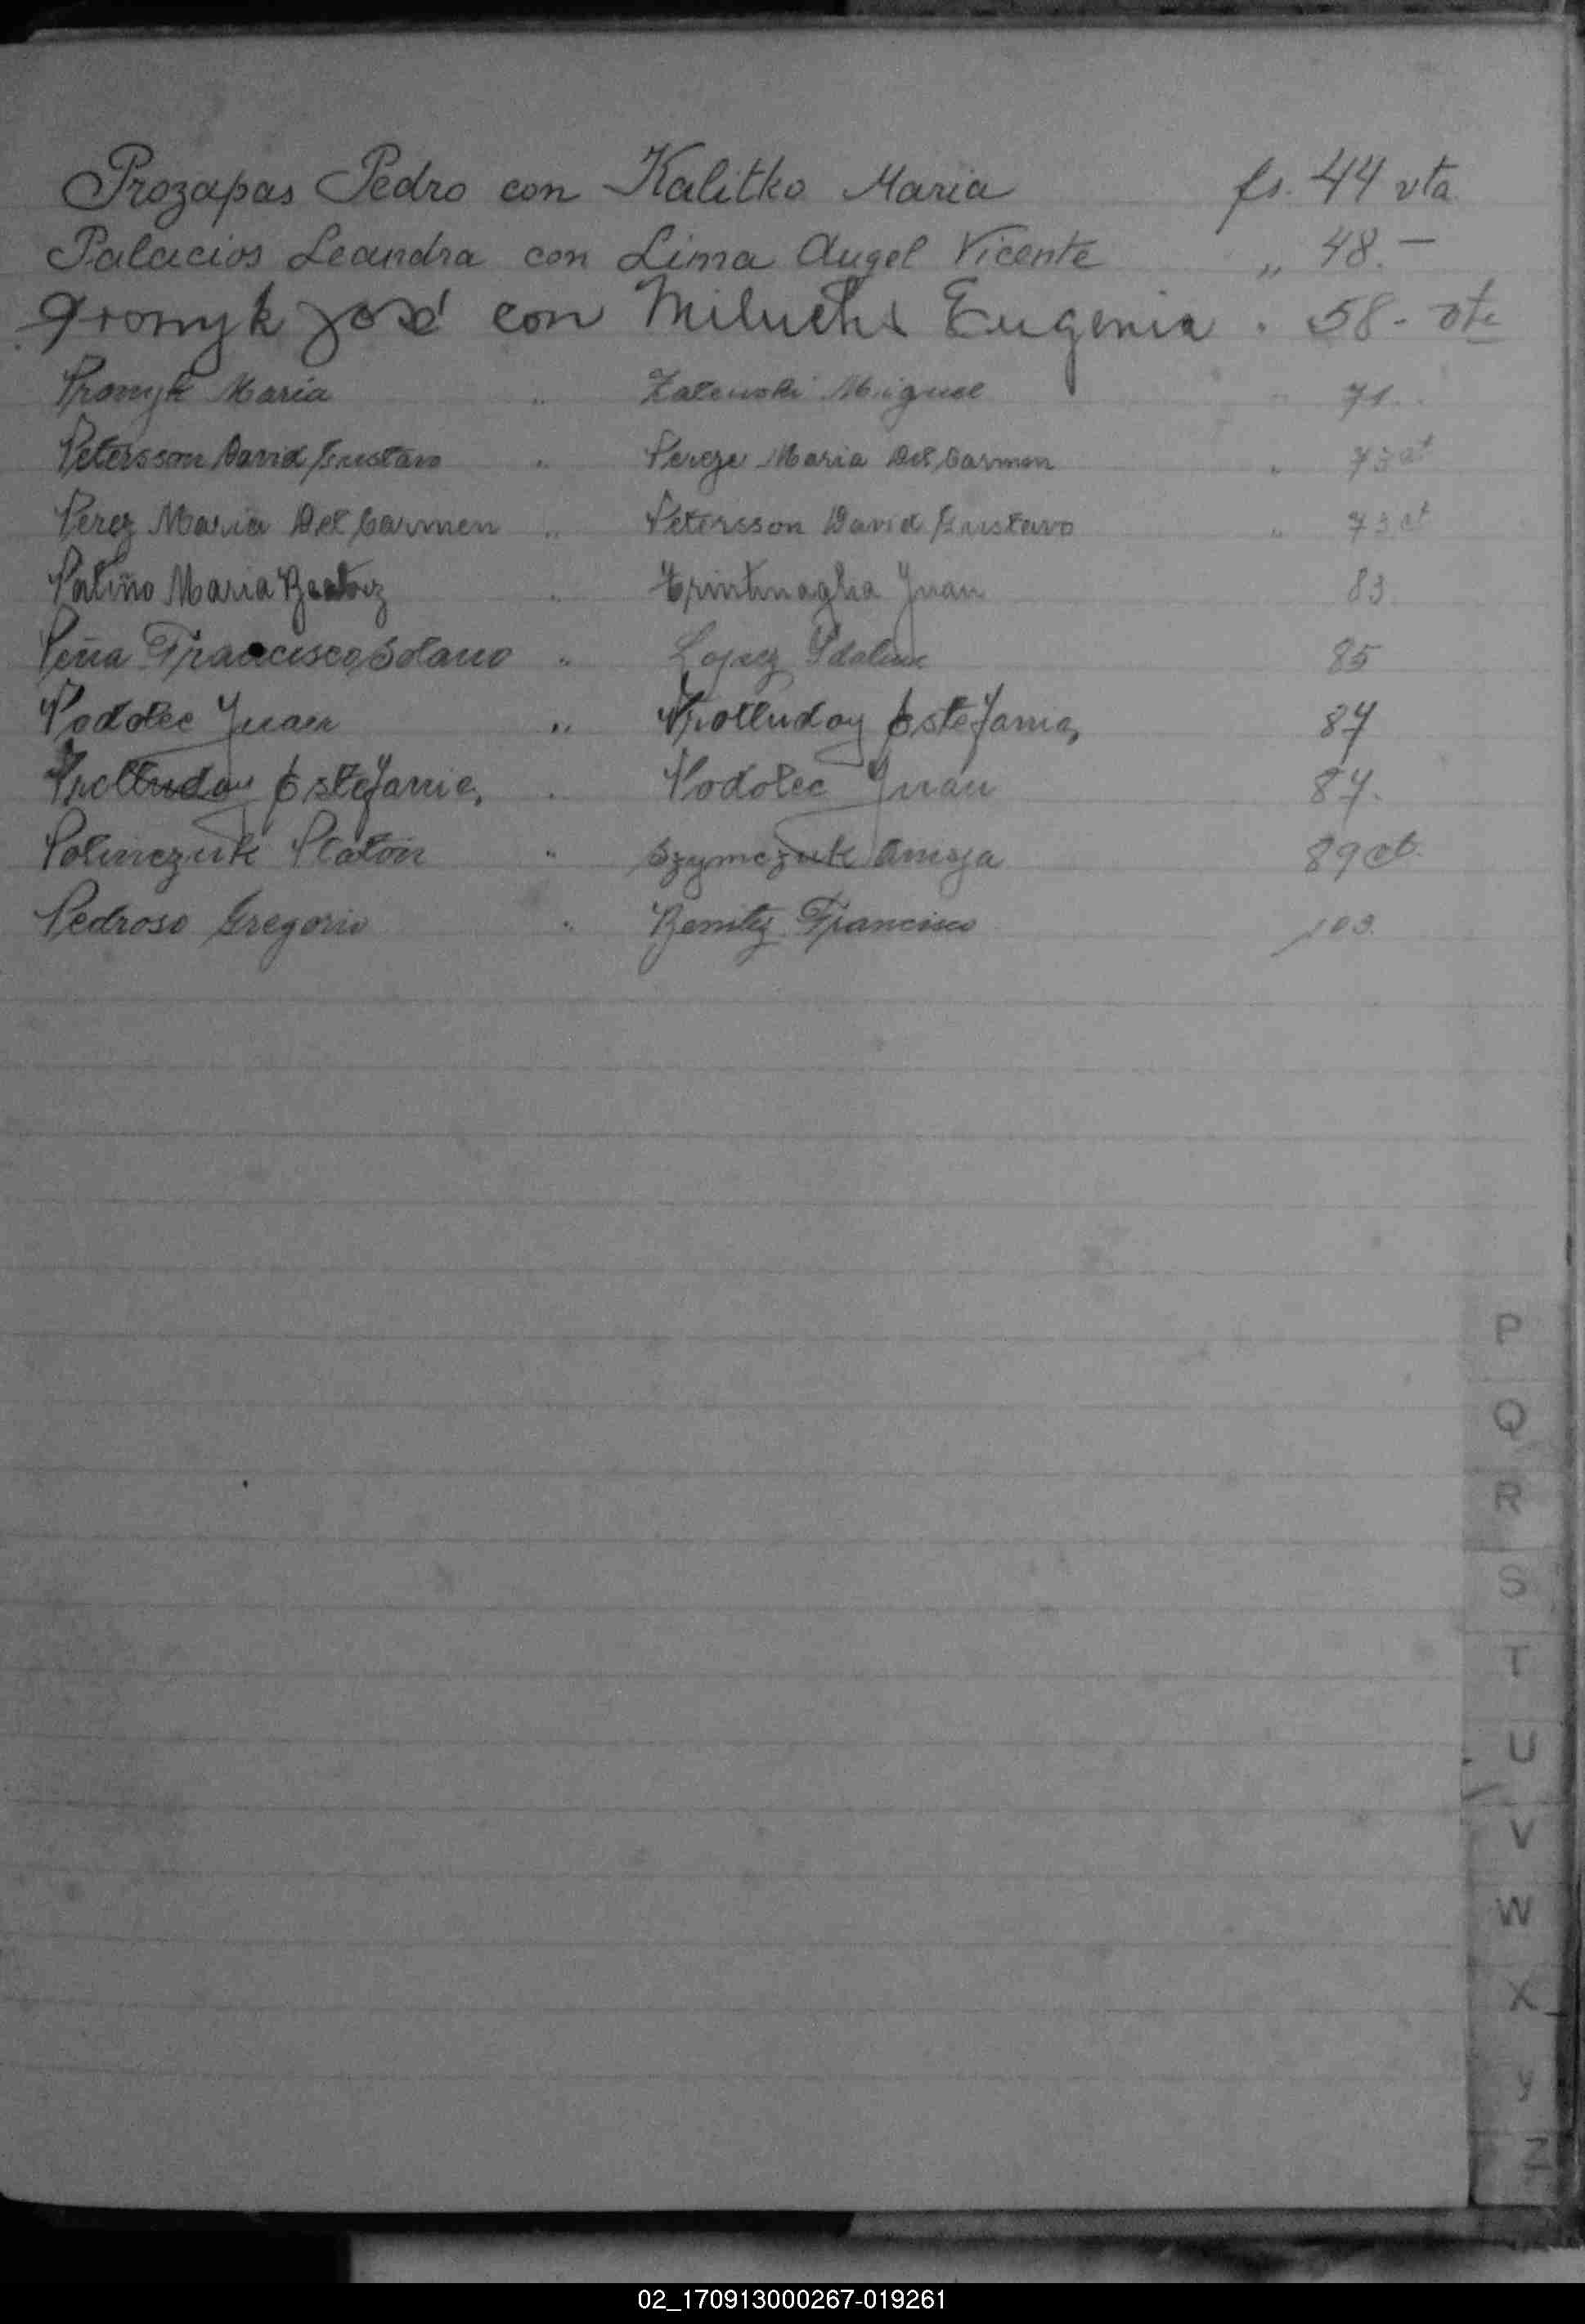 Prozapas Pedro con Kalitko Maria fs. 44 vta
Palacios Leandra con Lima Angel Vicente " 48.-
Promyk José con Eugenia . 58 - vta
Promyk Maria " Zalenski Miguel " 71.
Petersson David Gustavo " Pereze Maria Del Carmen " 73 vt
Perez Maria Del Carmen " Petersson David Gustavo " 73 vt
Patiño Maria Beatriz " Juan 83
Peña Francisco Solano " Lopez Idalina 85
Podolec Juan " Estefania, 87
Estefania, " Podolec Juan 87.
Polinczuk Platón " Szymczuk 89 vt.
Pedroso Gregorio " Benitez Francisco 103.
P
Q
R
S
T
U
V
W
X
Y
Z
02_170913000267-019261